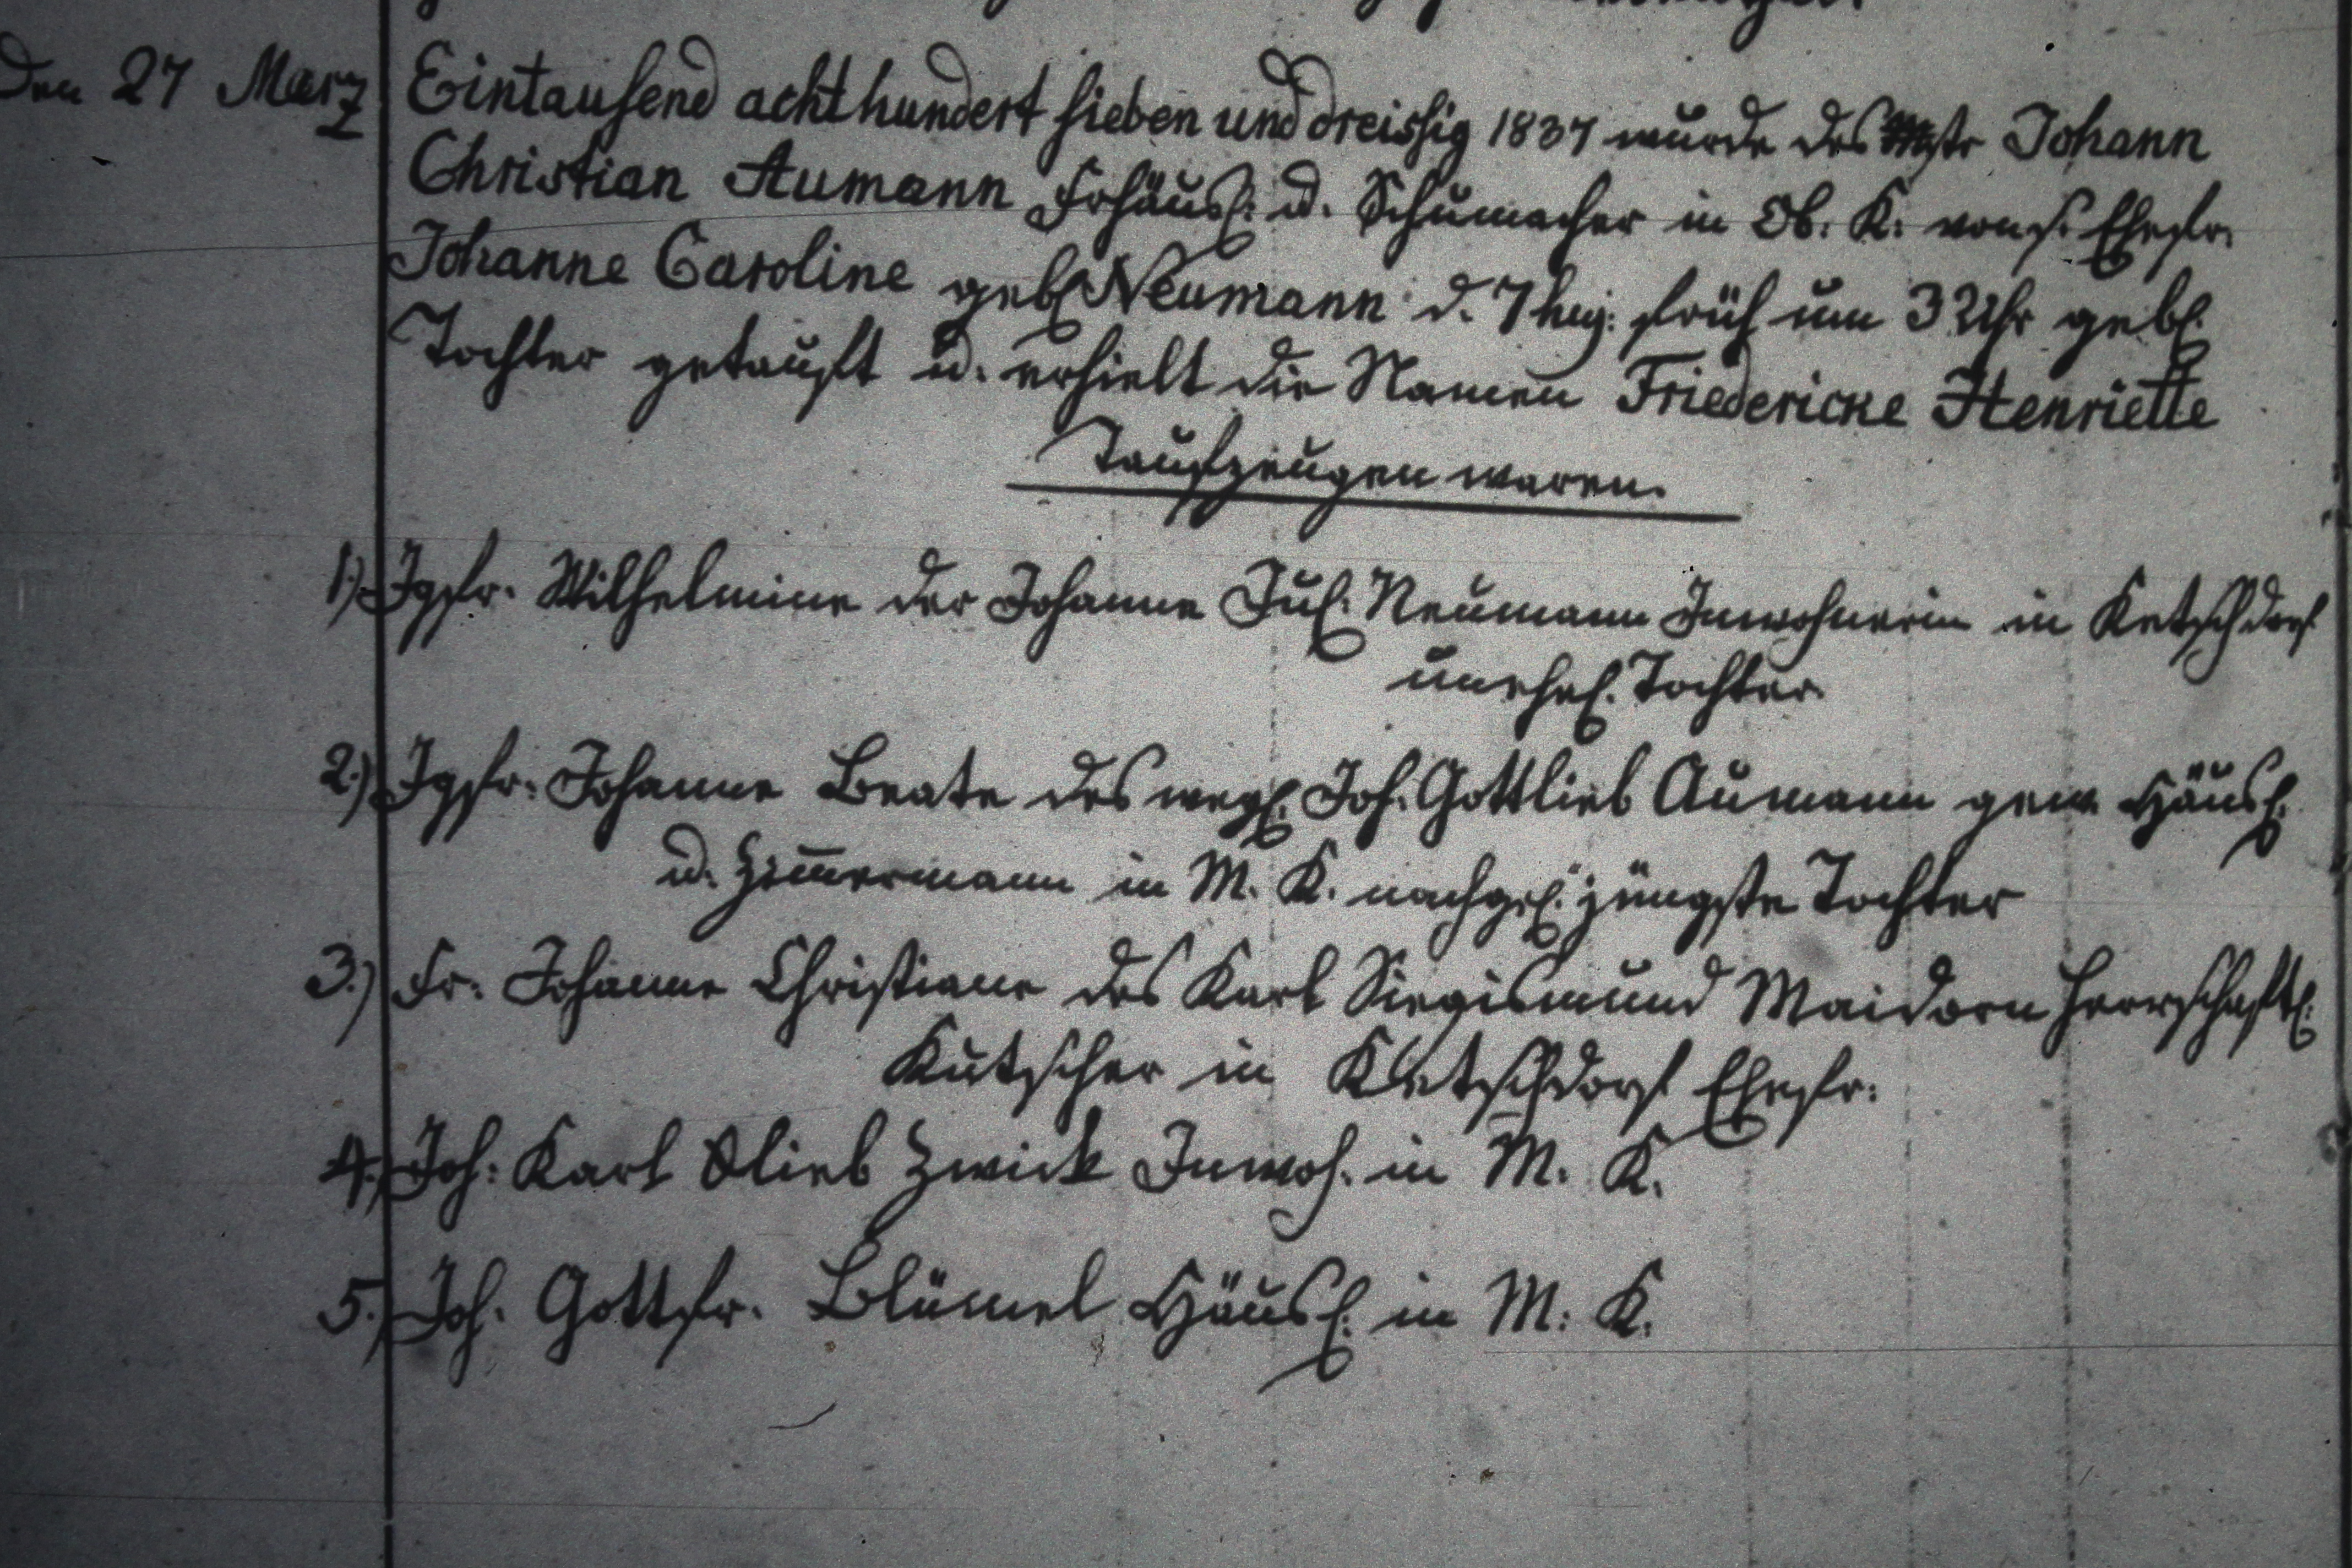 Den 27 März Eintausend achthundert sieben und dreissig 1837 wurde des Mstr Johann
Christian Aumann Frhäusl. u. Schumacher in Ob. K. von s. Ehefr.
Johanne Caroline geb. Neumann d. 7 huj. früh um 3 Uhr geb.
Tochter getauft u. erhielt die Namen Friedericke Henriette
Taufzeugen waren.
1.) Jgfr. Wilhelmine der Johanne Jul. Neumann Inwohnerin in Ketschdorf
unehel. Tochter
2.) Jgfr. Johanne Beate des weyl. Joh. Gottlieb Aumann gew. Häusl.
u. Zimmermann in M. K. nachgel. jüngste Tochter
3.) Fr. Johanne Christiane des Karl Siegismund Maidorn herrschaftl.
Kutscher in Ketschdorf Ehefr.
4.) Joh. Karl Glieb Zwick Inwoh. in M. K.
5.) Joh. Gottfr. Blümel Häusl. in M. K.